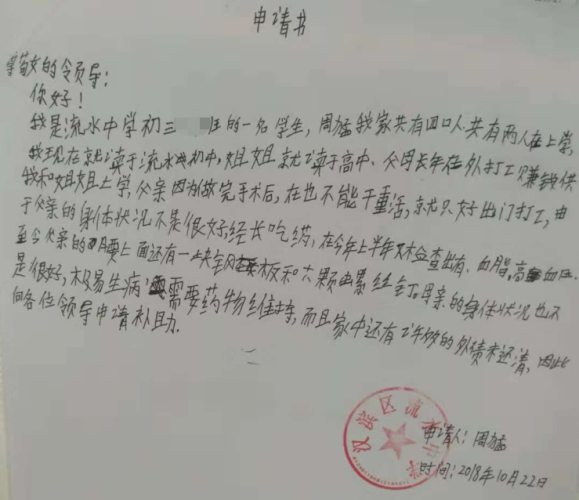 申请书
尊敬的令领导：
你好！
我是流水中学初三 班的一名学生，周猛我家共有四口人共有两人在上学，
我现在就读于流水初中，姐姐就读于高中、父母长年在外打工赚钱供
我和姐姐上学，父亲因为做完手术后，在也不能干重活，就只好出门打工，由
于父亲的身体状况不是很好经长吃药，在今年上半年又检查出有、血脂，高血压.
至今父亲的腰上面还有一块全钢板和六颗螺丝钉。母亲的身体状况也不
是很好，极易生病，需要药物维持，而且家中还有许多的外债未还清，因此
向各位领导申请补助.
汉滨区流水
申请人：周猛
时间：2018年10月22日